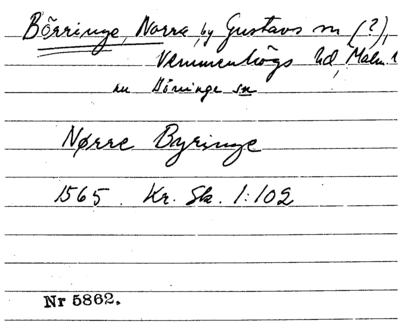 Börringe, Norra, by Gustavs sn (?),
Vemmenhögs hd, Malm. l
nu Börringe sn
Nørre Byringe
1565. Kr. Sk. 1:102
Nr 5862.